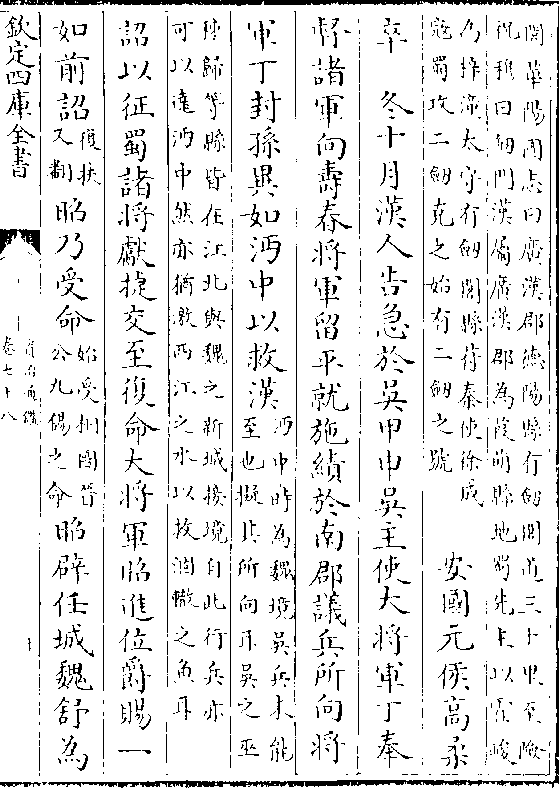 閣華陽國志曰廣漢郡德陽縣有劒閣道三十里至險
祝穆曰劒門漢屬廣漢郡為葭萌縣地蜀先主以霍峻
為梓潼太守有劒閣縣苻秦使徐成
寇蜀攻二劒克之始有二劒之號
安國元侯高柔
卒 冬十月漢人告急於吳甲申吳主使大將軍丁奉
督諸軍向壽春將軍留平就施績於南郡議兵所向將
軍丁封孫異如沔中以救漢
沔中時為魏境吳兵未能
至也擬其所向耳吳之巫
秭歸等縣皆在江北與魏之新城接境自此行兵亦
可以達沔中然亦猶激西江之水以救涸轍之魚耳
詔以征蜀諸將獻捷交至復命大將軍昭進位爵賜一
如前詔
復扶
又翻
昭乃受命
始受相國晉
公九錫之命
昭辟任城魏舒為
欽定四庫全書
資治通鑑
卷七十八